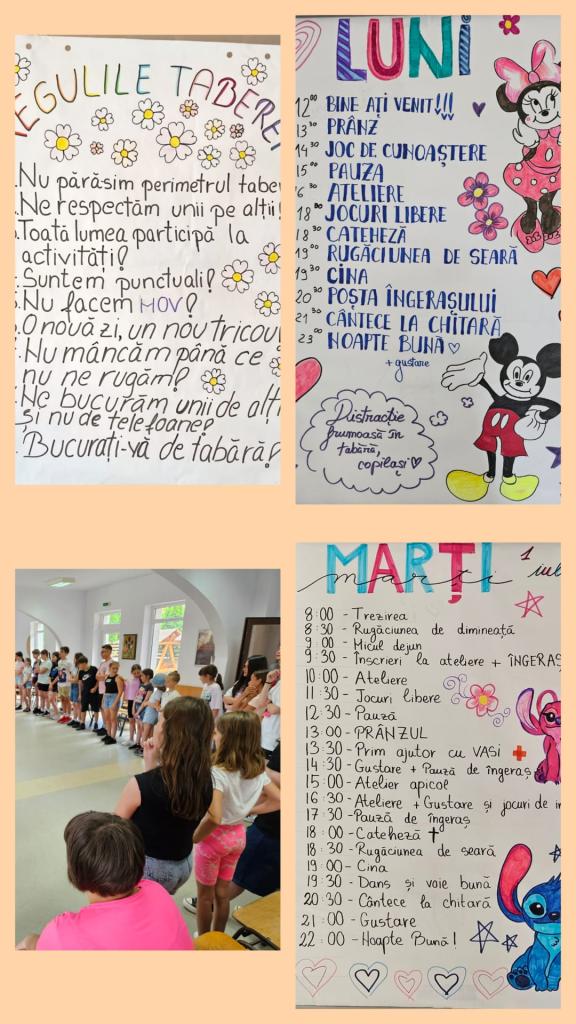 REGULILE TABEREI
Nu părăsim perimetrul
Ne respectăm unii pe alții!
Toată lumea participă la
activități!
Suntem punctuali!
Nu facem MOV!
O nouă zi, un nou tricou
Nu mâncăm până ce
nu ne rugăm!
Ne bucurăm unii de alții
și nu de telefoane!
Bucurați-vă de tabără!
LUNI
12:00 BINE AȚI VENIT!!!
13:30 PRÂNZ
14:30 JOC DE CUNOAȘTERE
15:00 PAUZA
16:30 ATELIERE
18:00 JOCURI LIBERE
18:30 CATEHEZĂ
19:00 RUGĂCIUNEA DE SEARĂ
19:30 CINA
20:30 POȘTA ÎNGERAȘULUI
21:30 CÂNTECE LA CHITARĂ
23:00 NOAPTE BUNĂ ♡
+ gustare
Distracție
frumoasă în
tabără,
copilași ♡
MARȚI
marți 1 iul
8:00 - Trezirea
8:30 - Rugăciunea de dimineață
9:00 - Micul dejun
9:30 - Înscrieri la ateliere + ÎNGERAȘ
10:00 - Ateliere
11:30 - Jocuri libere
12:30 - Pauză
13:00 - PRÂNZUL
13:30 - Prim ajutor cu VASI
14:30 - Gustare + Pauză de îngeraș
15:00 - Atelier apicol
16:30 - Ateliere + Gustare și jocuri de
17:30 - Pauză de îngeraș
18:00 - Cateheză
18:30 - Rugăciunea de seară
19:00 - Cina
19:30 - Dans și voie bună
20:30 - Cântece la chitară
21:00 - Gustare
22:00 - Noapte Bună!